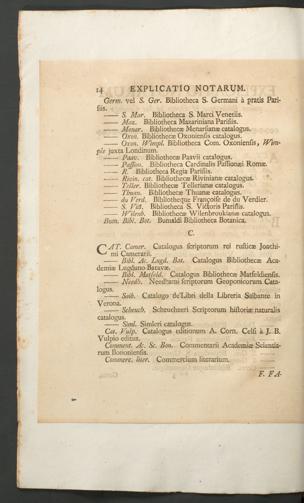 14 EXPLICATIO NOTARUM.
Germ. vel S. Ger. Bibliotheca S. Germani à pratis Pari-
siis.
—— S. Mar. Bibliotheca S. Marci Venetiis.
—— Maz. Bibliotheca Mazariniana Parisiis.
—— Menar. Bibliothecæ Menarsianæ catalogus.
—— Oxon. Bibliothecæ Oxoniensis catalogus.
—— Oxon. Wimpl. Bibliotheca Com. Oxoniensis, Wim-
ple juxta Londinum.
—— Paav. Bibliothecæ Paavii catalogus.
—— Passion. Bibliotheca Cardinalis Passionei Romæ.
—— R. Bibliotheca Regia Parisiis.
—— Rivin. cat. Bibliothecæ Rivinianæ catalogus.
—— Teller. Bibliothecæ Tellerianæ catalogus.
—— Thuan. Bibliothecæ Thuanæ catalogus.
—— du Verd. Bibliotheque Françoise de du Verdier.
—— S. Vict. Bibliotheca S. Victoris Parisiis.
—— Wilenb. Bibliothecæ Wilenbroukianæ catalogus.
Bum. Bibl. Bot. Bumaldi Bibliotheca Botanica.
C.
CAT. Camer. Catalogus scriptorum rei rusticæ Joachi-
mi Camerarii.
—— Bibl. Ac. Lugd. Bat. Catalogus Bibliothecæ Aca-
demiæ Lugduno Batavæ.
—— Bibl. Matfeld. Catalogus Bibliothecæ Matfeldiensis.
—— Needh. Needhami scriptorum Geoponicorum Cata-
logus.
—— Saib. Catalogo de'Libri della Libreria Saibante in
Verona.
—— Scheuch. Scheuchzeri Scriptorum historiæ naturalis
catalogus.
—— Siml. Simleri catalogus.
Cat. Vulp. Catalogus editionum A. Corn. Celsi à J. B.
Vulpio editus.
Comment. Ac. Sc. Bon. Commentarii Academiæ Scientia-
rum Bononiensis.
Commerc. liter. Commercium literarium.
F. FA-